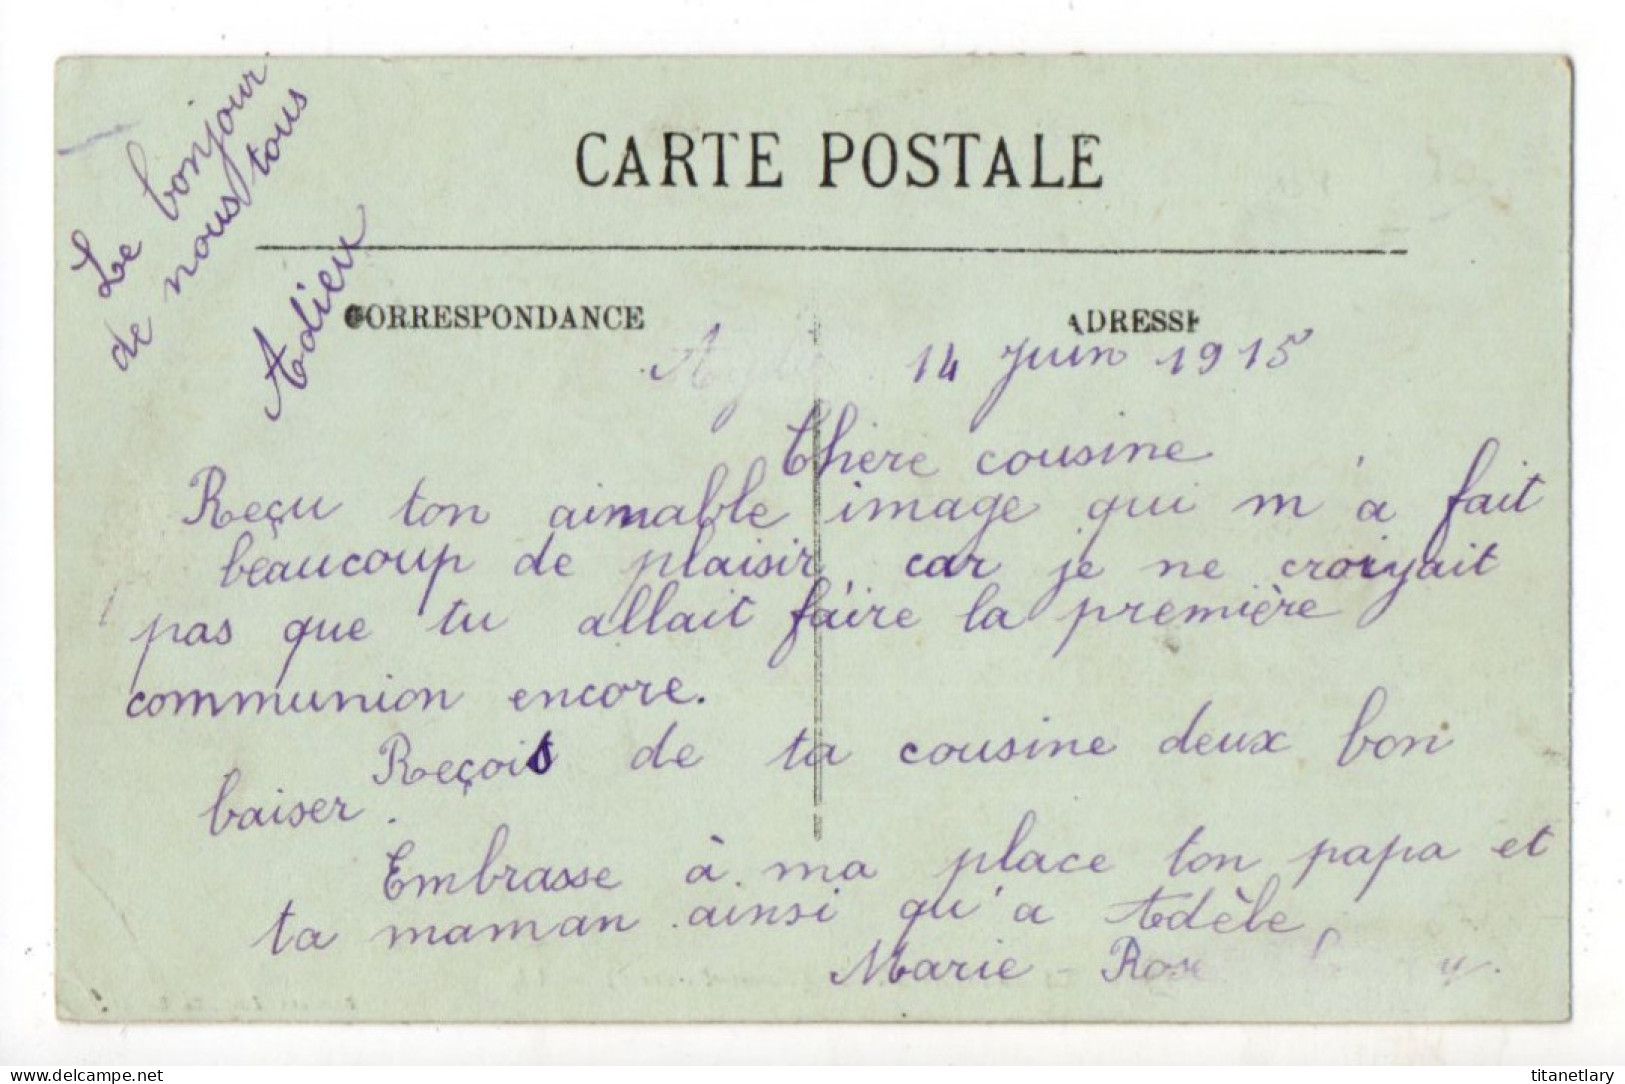 Le bonjour
de nous tous
Adieu
CARTE POSTALE
CORRESPONDANCE
ADRESSE
14 Juin 1915
Chère cousine
Reçu ton aimable image qui m'a fait
beaucoup de plaisir car je ne croiyait
pas que tu allait faire la première
communion encore.
Reçois de ta cousine deux bon
baiser.
Embrasse à ma place ton papa et
ta maman ainsi qu'a Adèle,
Marie - Rose
Delcampe.net
titanetlary